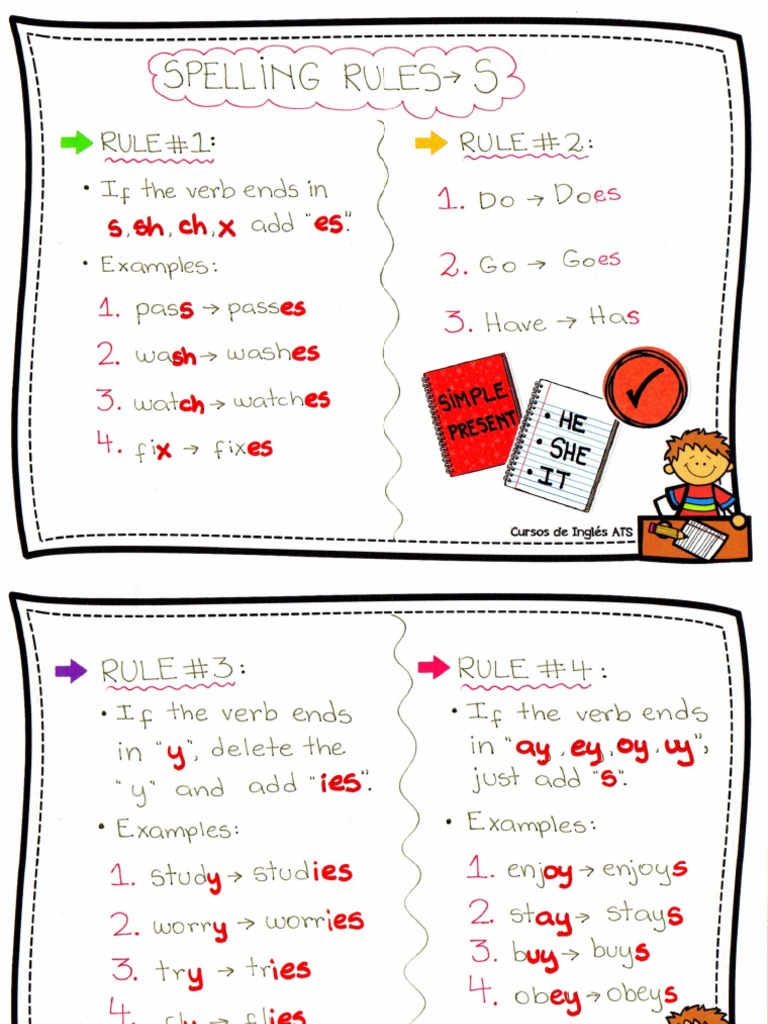 SPELLING RULES→ S
RULE #1:
• If the verb ends in
s, sh, ch, x add "es".
• Examples:
1. pass → passes
2. wash → washes
3. watch → watches
4. fix → fixes
RULE #2:
1. Do → Does
2. Go → Goes
3. Have → Has
SIMPLE
PRESENT
• HE
• SHE
• IT
Cursos de Inglés ATS
RULE #3:
• If the verb ends
in "y", delete the
"y" and add "ies".
• Examples:
1. study → studies
2. worry → worries
3. try → tries
4. → flies
RULE #4:
• If the verb ends
in "ay, ey, oy, uy",
just add "s".
• Examples:
1. enjoy → enjoys
2. stay → stays
3. buy → buys
4. obey → obeys